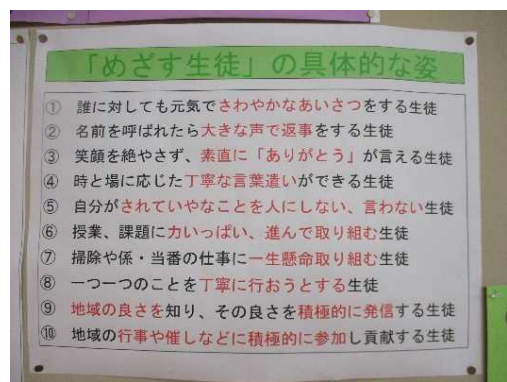 「めざす生徒」の具体的な姿
① 誰に対しても元気でさわやかなあいさつをする生徒
② 名前を呼ばれたら大きな声で返事をする生徒
③ 笑顔を絶やさず、素直に「ありがとう」が言える生徒
④ 時と場に応じた丁寧な言葉遣いができる生徒
⑤ 自分がされていやなことを人にしない、言わない生徒
⑥ 授業、課題に力いっぱい、進んで取り組む生徒
⑦ 掃除や係・当番の仕事に一生懸命取り組む生徒
⑧ 一つ一つのことを丁寧に行おうとする生徒
⑨ 地域の良さを知り、その良さを積極的に発信する生徒
⑩ 地域の行事や催しなどに積極的に参加し貢献する生徒